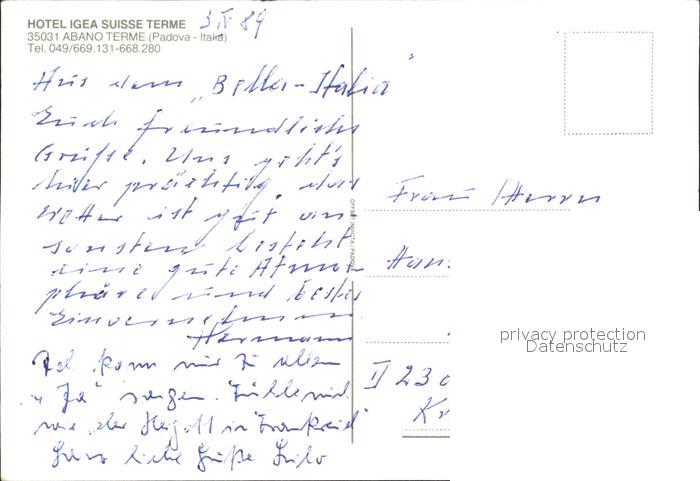 HOTEL IGEA SUISSE TERME
35031 ABANO TERME (Padova - Italia)
Tel. 049/669.131-668.280
3 IX 89
Aus dem „Bella-Italia"
Euch freundliche
Grüße. Uns geht's
hier prächtig, das
Wetter ist gut an
sonsten besteht
eine gute Atmos-
phäre und bestes
Einvernehmen
Hermann
Ich kann nur zu allem
„Ja" sagen. Fühle mich
wie „der Herrgott in Frankreich"
Ganz liebe Grüße
Frau / Herrn
Hans
D 230
Kr
privacy protection
Datenschutz